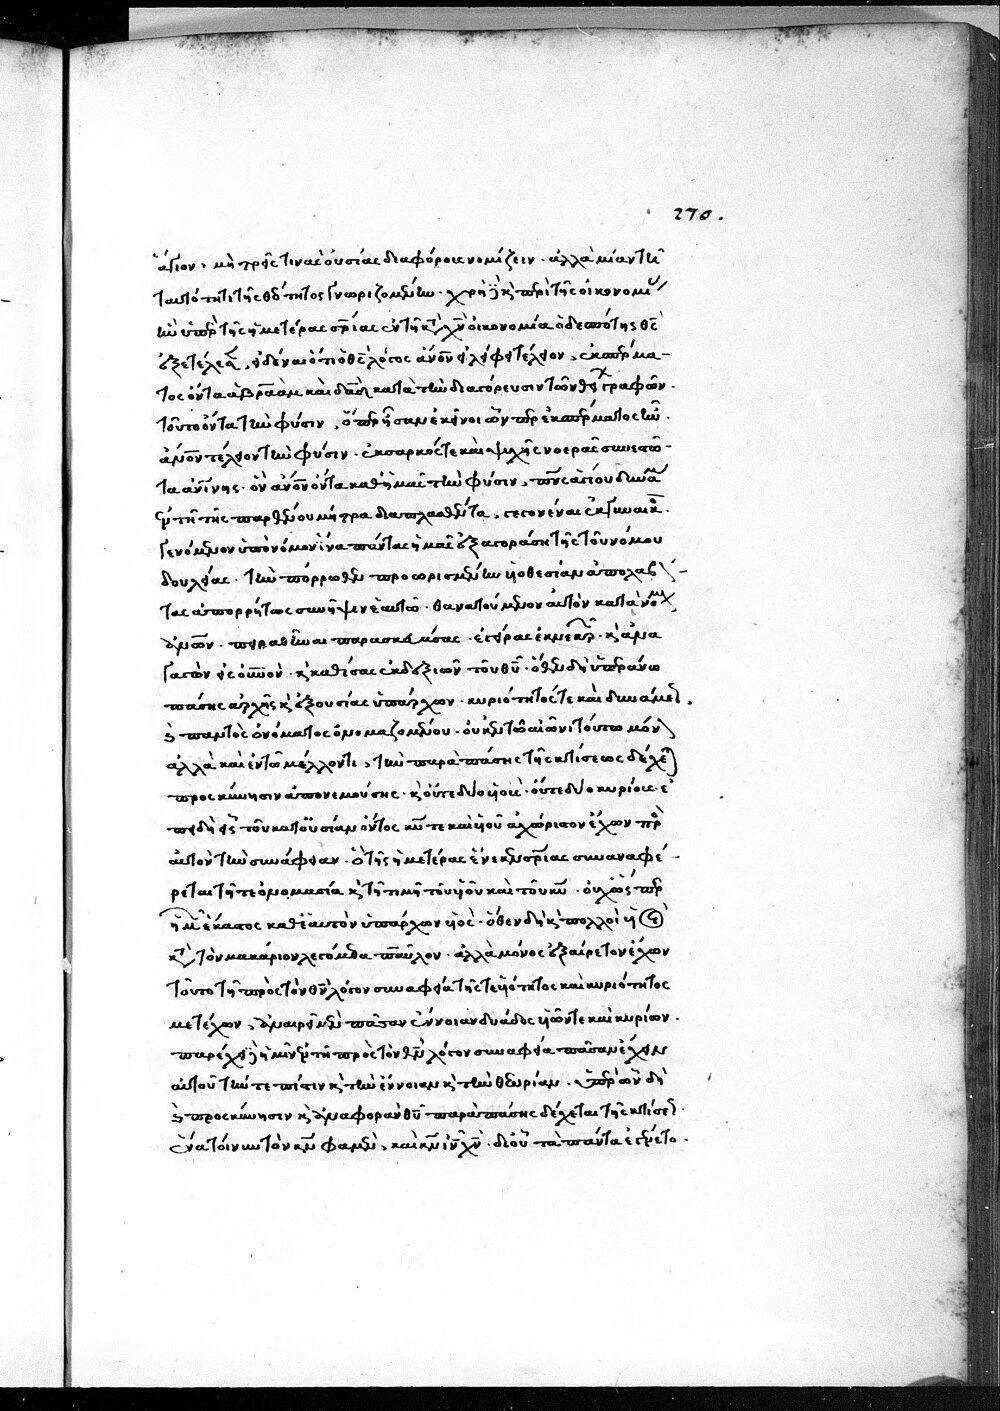 ἅγιον, μὴ τρεῖς τινας οὐσίας διαφόροις νομίζειν. ἀλλὰ μίαν τῆ
ταυτότητι τῆς θεότητος γνωριζομένην. χρὴ δὲ κ περὶ τῆς οἰκονομί
ἣν ὑπὲρ τῆς ἡμετέρας σρίας ἐν τῆ κτ χν οἰκονομία ὁ δεσπότης θς
ἐξετέλεσ, εἰδέναι ὅτι ὁ θς λόγος ἄνον εἴληφε τέλειον, ἐκ σπέρμα-
τος ὄντα ἀβραὰμ καὶ δαδ κατὰ τὴν διαγόρευσιν τῶν θει γραφῶν.
τοῦτο ὄντα τὴν φύσιν, ὅπερ ἦσαν ἐκεῖνοι ὧν περ ἐκ σπέρματος ἦν.
ἄνον τέλειον τὴν φύσιν. ἐκ σαρκός τε καὶ ψυχῆς νοερᾶς συνεστῶ-
τα ἀνίνης. ὃν ἄνον ὄντα καθ ἡμᾶς τὴν φύσιν, πνς ἁγίου δυνάμ
ἐν τῆ τῆς παρθένου μήτρα διαπλασθέντα, γεγονέναι ἐκ γυναικ.
γενόμενον ὑπὸ νόμον ἵνα πάντας ἡμᾶς ἐξαγοράση τῆς τοῦ νόμου
δουλείας. τὴν πόρρωθεν προωρισμένην υἱοθεσίαν ἀπολαβ -
τας ἀπορρήτως συνῆψεν ἑαυτῶ. θανατούμενον αὐτὸν κατὰ νόμ
πειραθῆναι παρασκευάσας. ἐγείρας ἐκ νεκρ. κ ἀνα
γαγὼν εἰς οὐνον. κ καθίσας ἐκ δεξιῶν τοῦ θυ. ὅθεν δὴ ὑπεράνω
πάσης ἀρχῆς κ ἐξουσίας ὑπάρχων. κυριότητός τε καὶ δυνάμε.
κ παντὸς ὀνόματος ὀνομαζομένου. οὐκ ἐν τῶ αἰῶνι τούτω μόν
ἀλλὰ καὶ ἐν τῶ μέλλοντι, τὴν παρὰ πάσης τῆς κτίσεως δέχε
προσκύνησιν ἀπονεμούσης. κ οὔτε δύο υἱοὺς. οὔτε δύο κυρίους. ἐ
πειδὴ εἷς τοῦ κατ οὐσίαν ὄντος κυ τε καὶ υἱοῦ ἀχώριστον ἔχων πρ
αὐτὸν τὴν συνάφειαν. ὁ τῆς ἡμετέρας ἕνεκεν σρίας συναναφέ-
ρεται τῆ τε ὀνομασία κ τῆ τιμῆ τοῦ υἱοῦ καὶ τοῦ κυ. οὐχ ὡς περ
ἡμῶν ἕκαστος καθ ἑαυτὸν ὑπάρχων υἱὸς. ὅθεν δὴ κ πολλοὶ υἱοὶ
κτ τὸν μακάριον λεγόμεθα παῦλον. ἀλλὰ μόνος ἐξαίρετον ἔχων
τοῦτο τῆ πρὸς τὸν θν λόγον συναφεία τῆς τε υἱότητος καὶ κυριότητος
μετέχων, ἀναιρεῖ μὲν πᾶσαν ἔννοιαν δυάδος υἱῶν τε καὶ κυρίων.
παρέχει δὲ ἡμῖν ἐν τῆ πρὸς τὸν θν λόγον συναφεία πᾶσαν ἔχειν
αὐτοῦ τήν τε πίστιν κ τὴν ἔννοιαν κ τὴν θεωρίαν. ὑπὲρ ὧν δὴ
κ προσκύνησιν κ ἀναφορὰν θυ παρὰ πάσης δέχεται τῆς κτίσεω.
ἕνα τοίνυν τὸν κν φαμὲν, καὶ κν ιν χν. δι οὗ τὰ πάντα ἐγένετο.